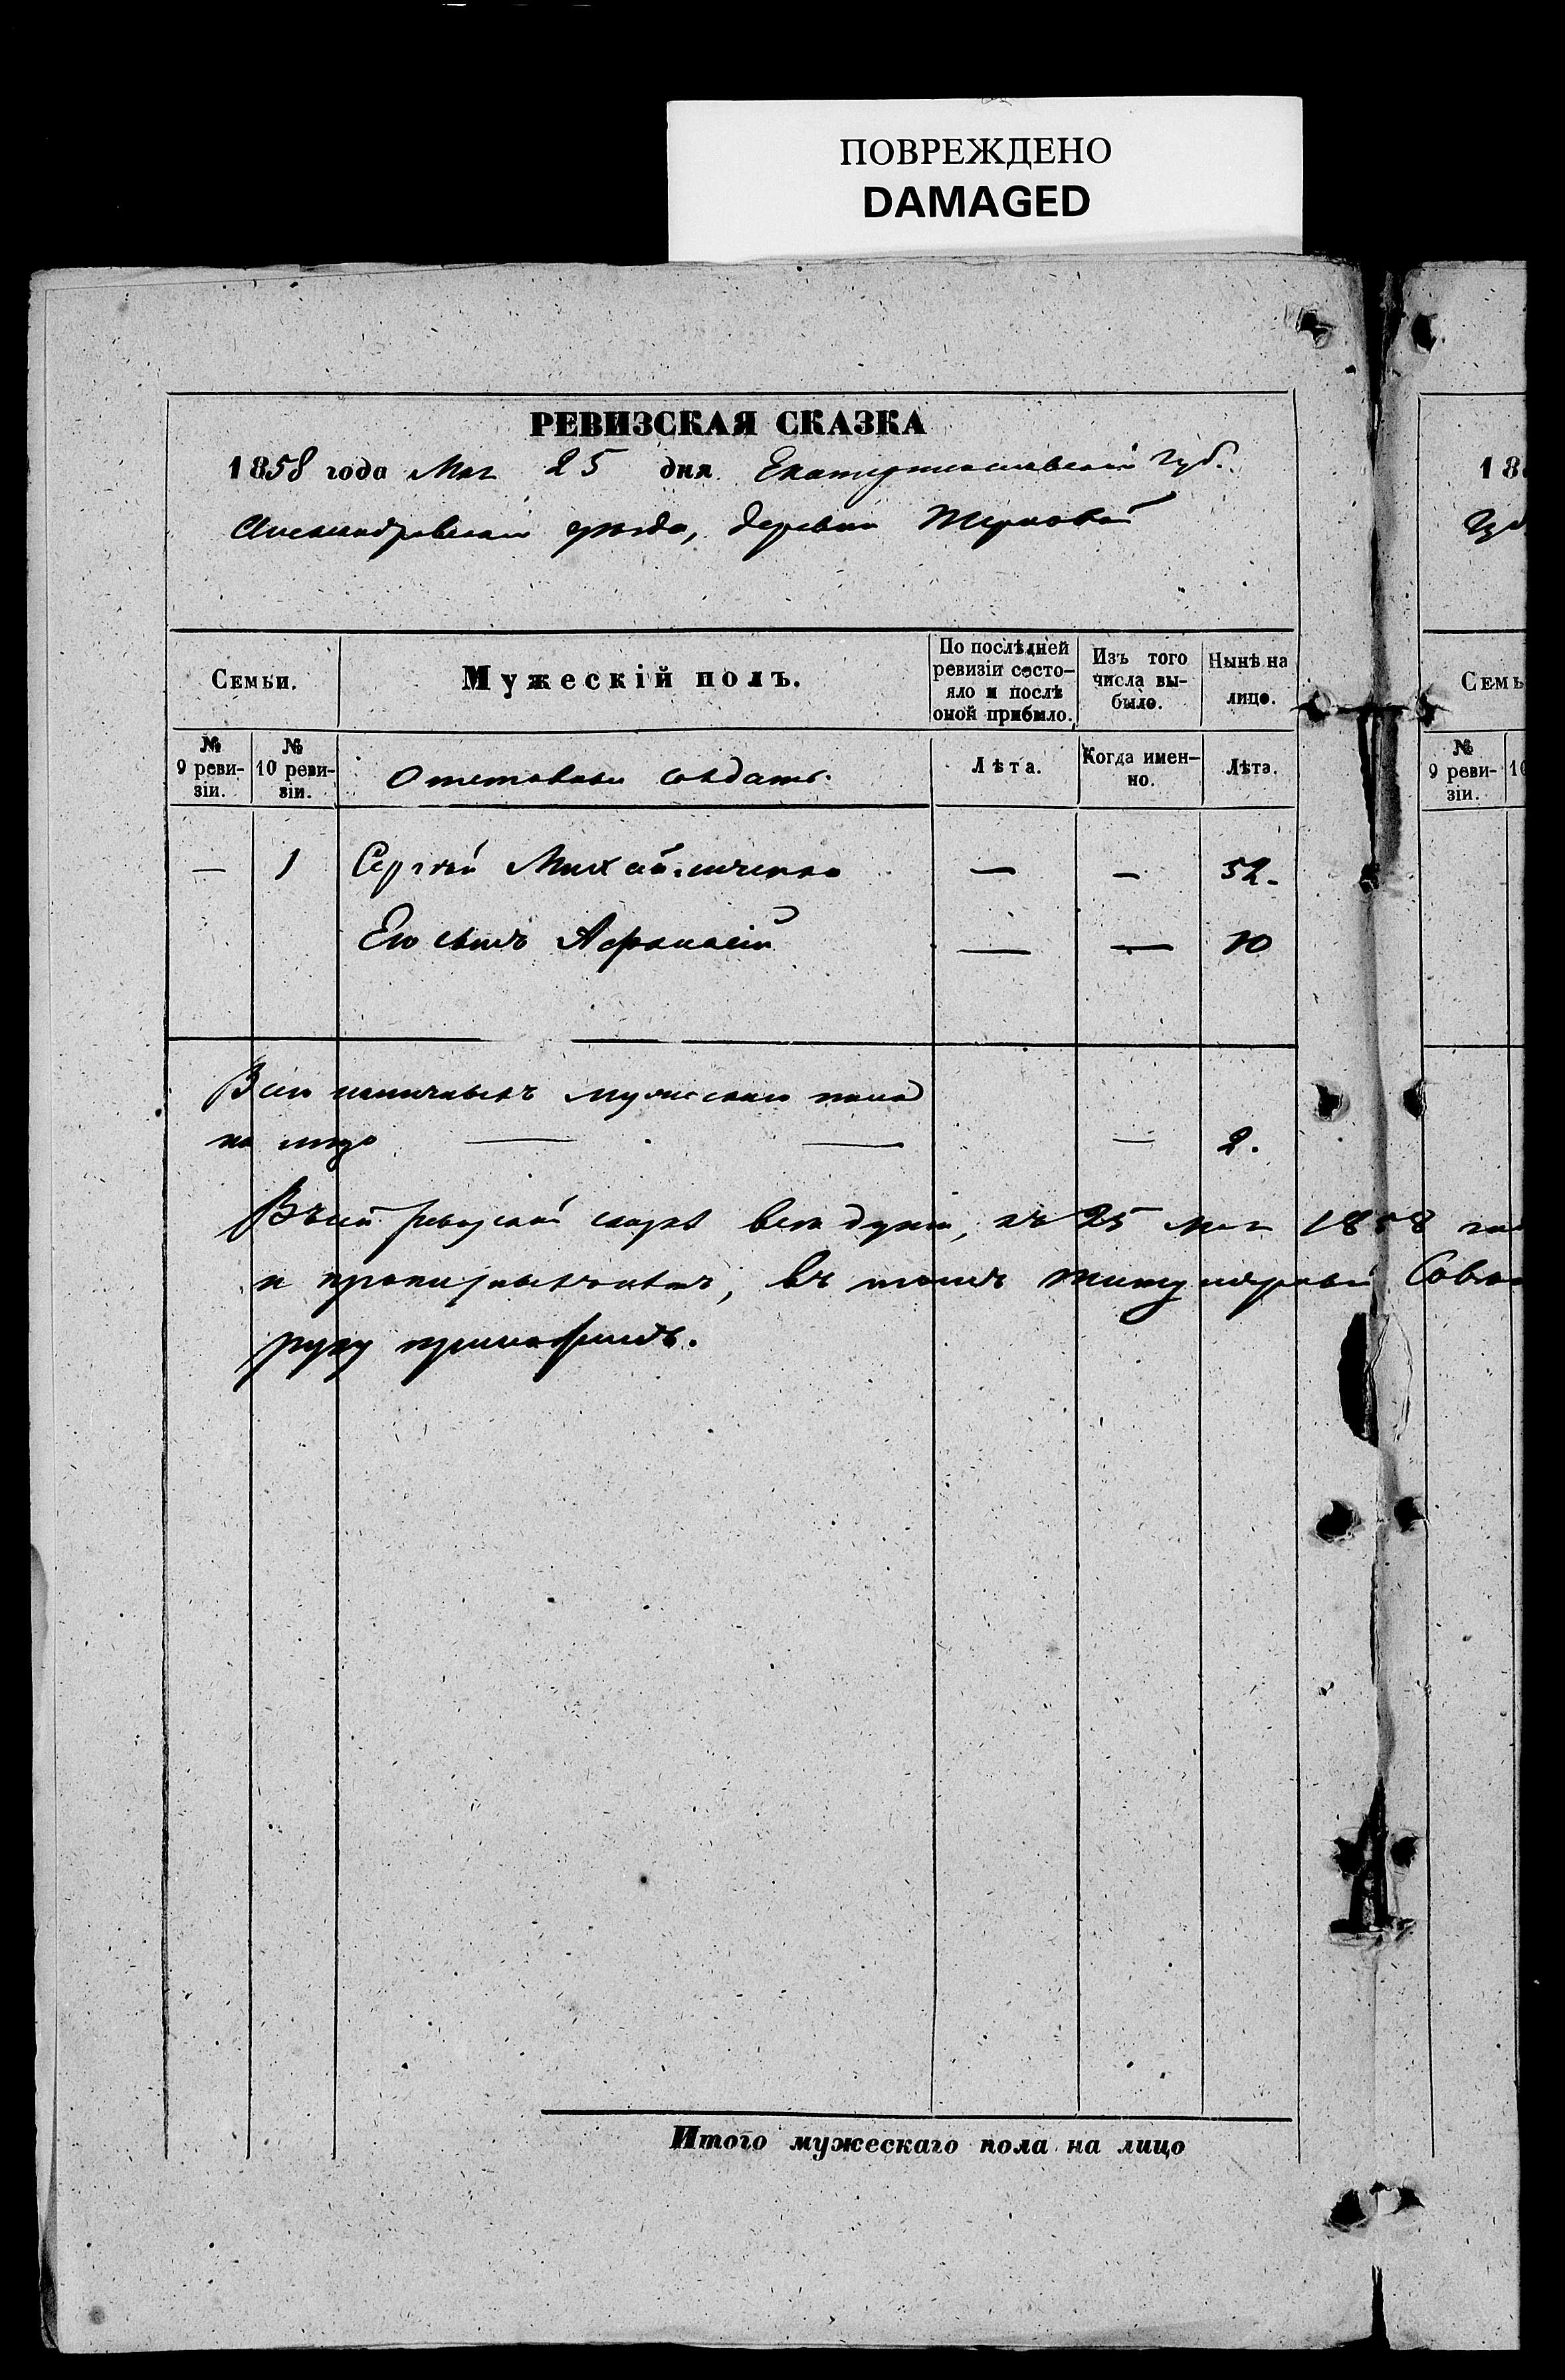 ПОВРЕЖДЕНО
DAMAGED
РЕВИЗСКАЯ СКАЗКА
1858 года Мая 25 дня Екатеринославской Губ.
Александровскаго уѣзда, деревни Терновой
Семьи.
Мужескій полъ.
По послѣдней ревизіи состояло и послѣ оной прибыло.
Изъ того числа выбыло.
Нынѣ на лицо.
№ 9 ревизіи.
№ 10 ревизіи.
Отставные солдаты.
Лѣта.
Когда именно.
Лѣта.
— 1 Сергѣй Михайличенко — — 52.
Его сынъ Афанасій — — 10
Всего наличныхъ мужескаго пола
на лицо — — — 2.
Въ сей ревизской сказкѣ всѣ души, къ 25 мая 1858
и въ томъ титулярный
руку приложилъ.
Итого мужескаго пола на лицо
18
Семь
№ 9 ревизіи.
10